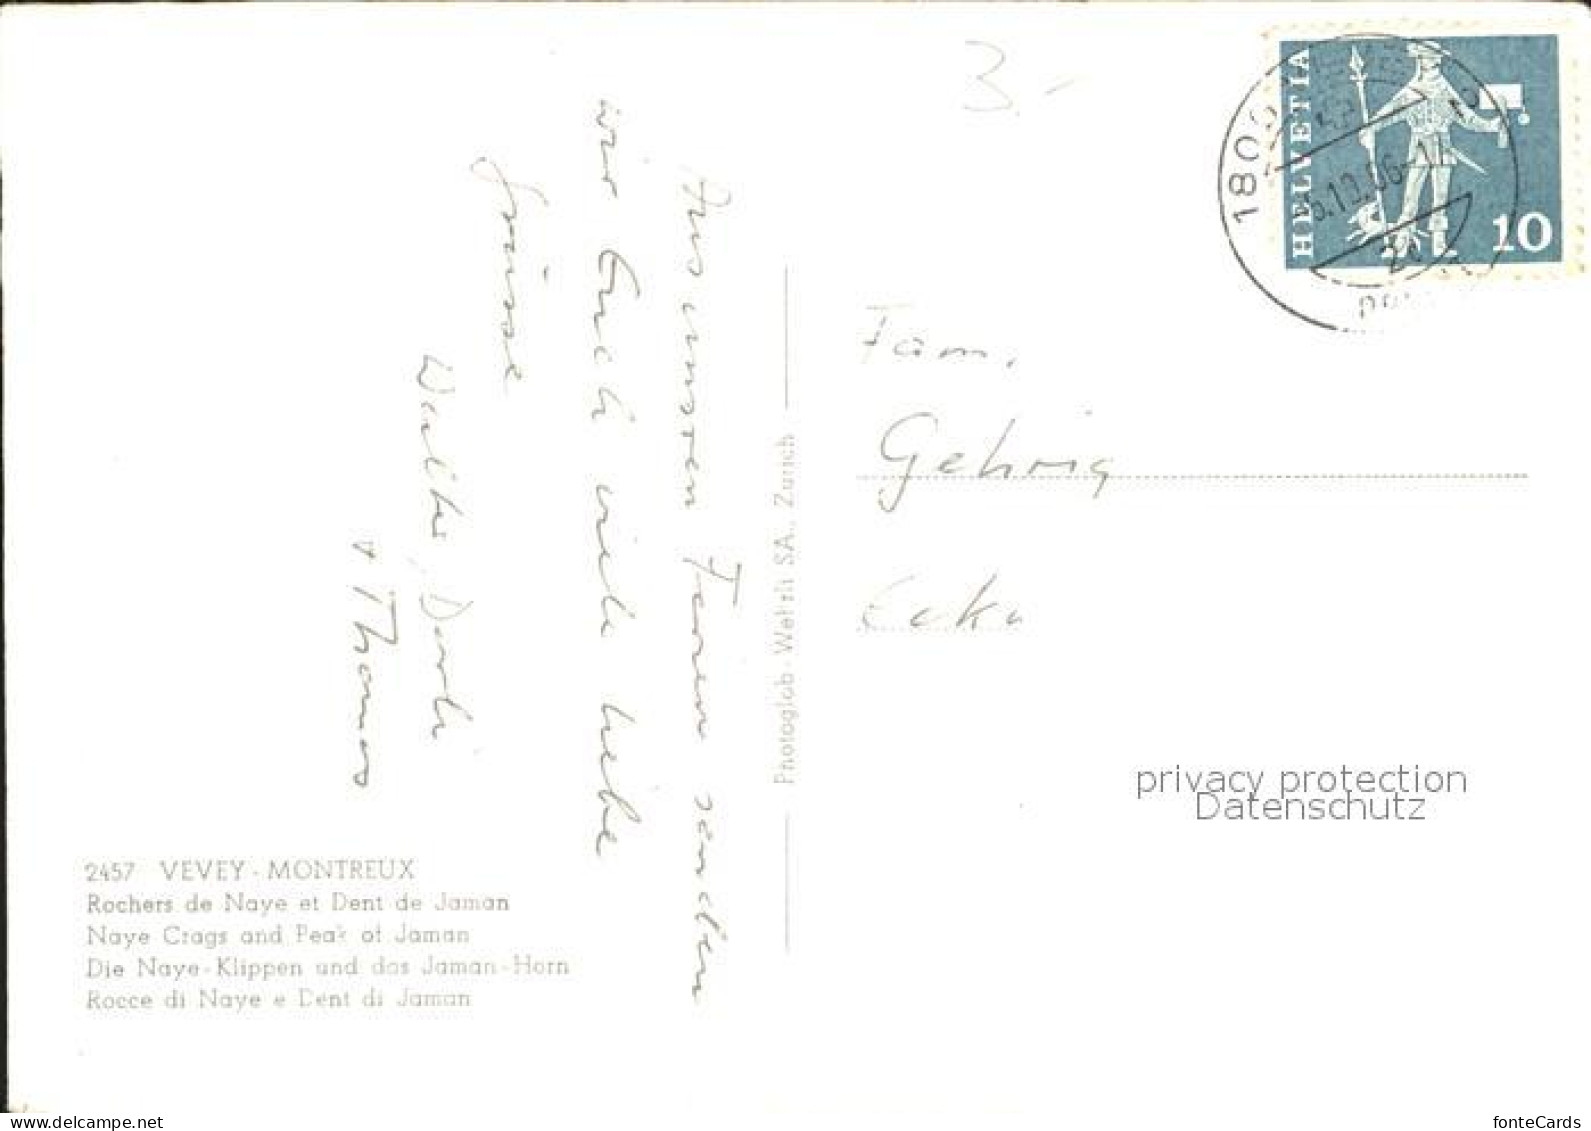 3.-
HELVETIA
10
1800
Aus unseren Ferien senden
wir Euch viele liebe
Grüsse
Walter, Dorli
+ Thomas
Photoglob-Wehrli SA., Zürich
Fam.
Gehrig
privacy protection
Datenschutz
2457 VEVEY - MONTREUX
Rochers de Naye et Dent de Jaman
Naye Crags and Peak of Jaman
Die Naye-Klippen und das Jaman-Horn
Rocce di Naye e Dent di Jaman
www.delcampe.net
fonteCards